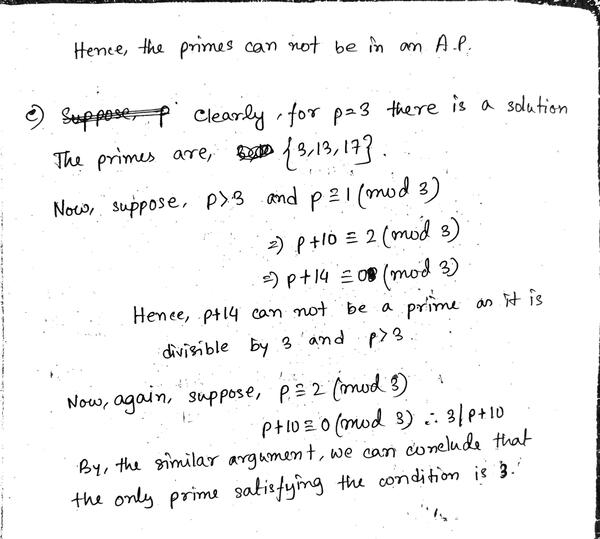 Hence, the primes can not be in an A.P.
c) Suppose, p Clearly, for p=3 there is a solution
The primes are, {3,13,17}.
Now, suppose, p>3 and p≡1(mod 3)
⇒ p+10 ≡ 2(mod 3)
⇒ p+14 ≡ 0(mod 3)
Hence, p+14 can not be a prime as it is
divisible by 3 and p>3.
Now, again, suppose, p≡2 (mod 3)
p+10≡0(mod 3) ∴ 3|p+10
By, the similar argument, we can conclude that
the only prime satisfying the condition is 3.